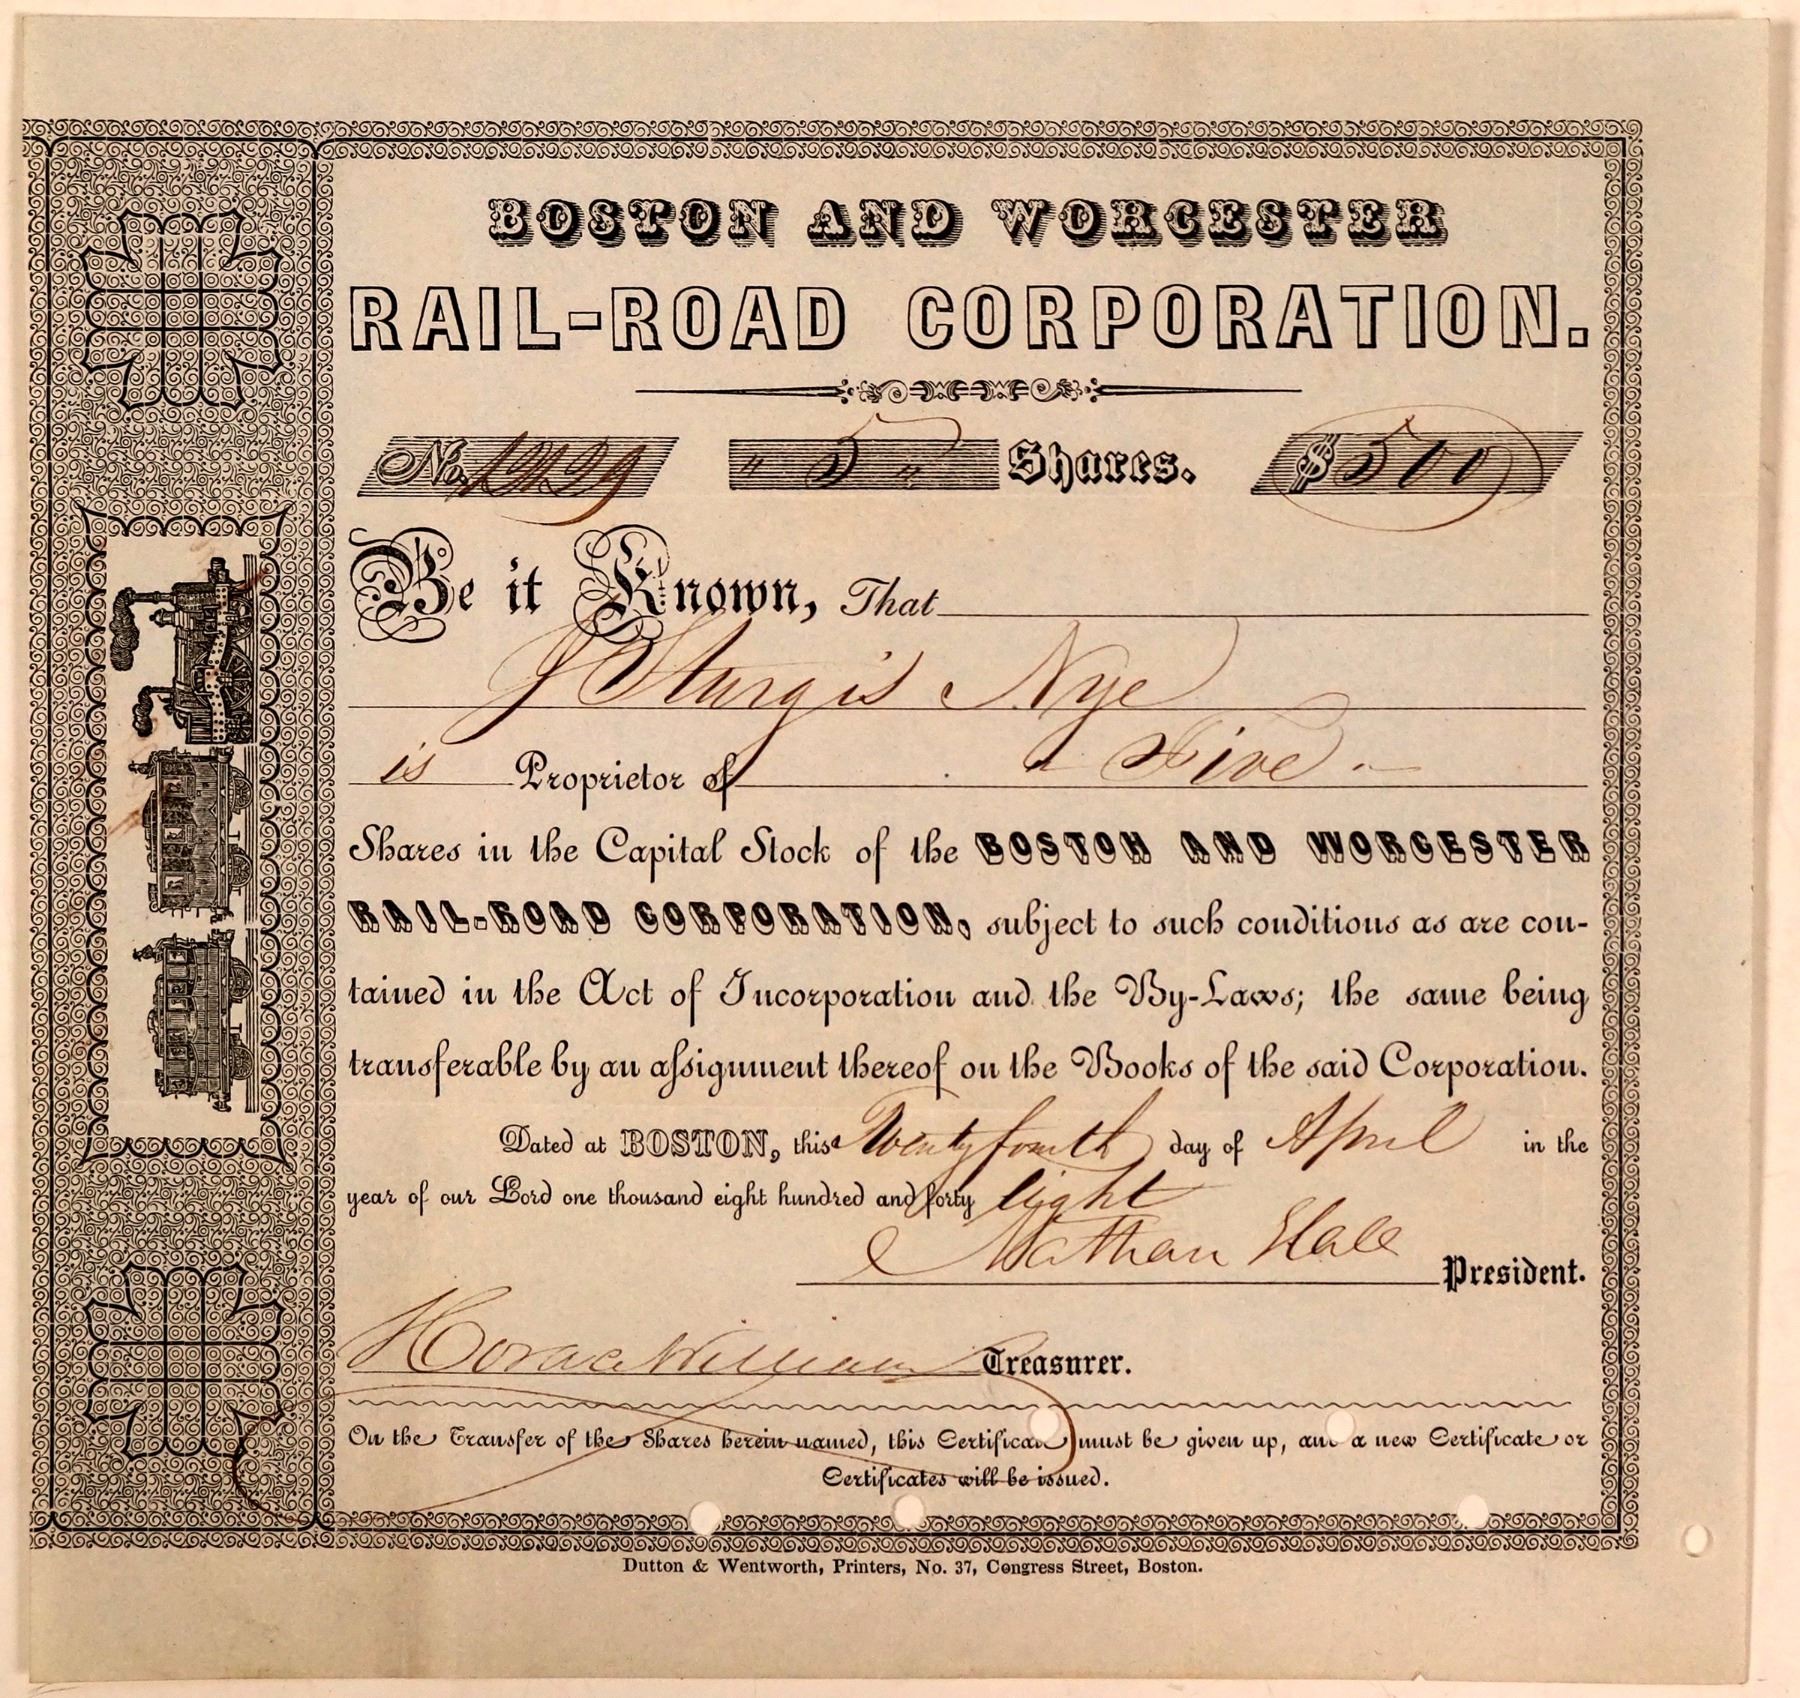 BOSTON AND WORCESTER
RAIL-ROAD CORPORATION.
No. 12129 " 5 " Shares. $500
Be it Known, That
J Sturgis Nye
is Proprietor of " Five.
Shares in the Capital Stock of the BOSTON AND WORCESTER
RAIL-ROAD CORPORATION, subject to such conditions as are con-
tained in the Act of Incorporation and the By-Laws; the same being
transferable by an assignment thereof on the Books of the said Corporation.
Dated at BOSTON, this Twenty fourth day of April in the
year of our Lord one thousand eight hundred and forty eight
Nathan Hale President.
Horace Williams Treasurer.
On the Transfer of the Shares herein named, this Certificate must be given up, and a new Certificate or
Certificates will be issued.
Dutton & Wentworth, Printers, No. 37, Congress Street, Boston.